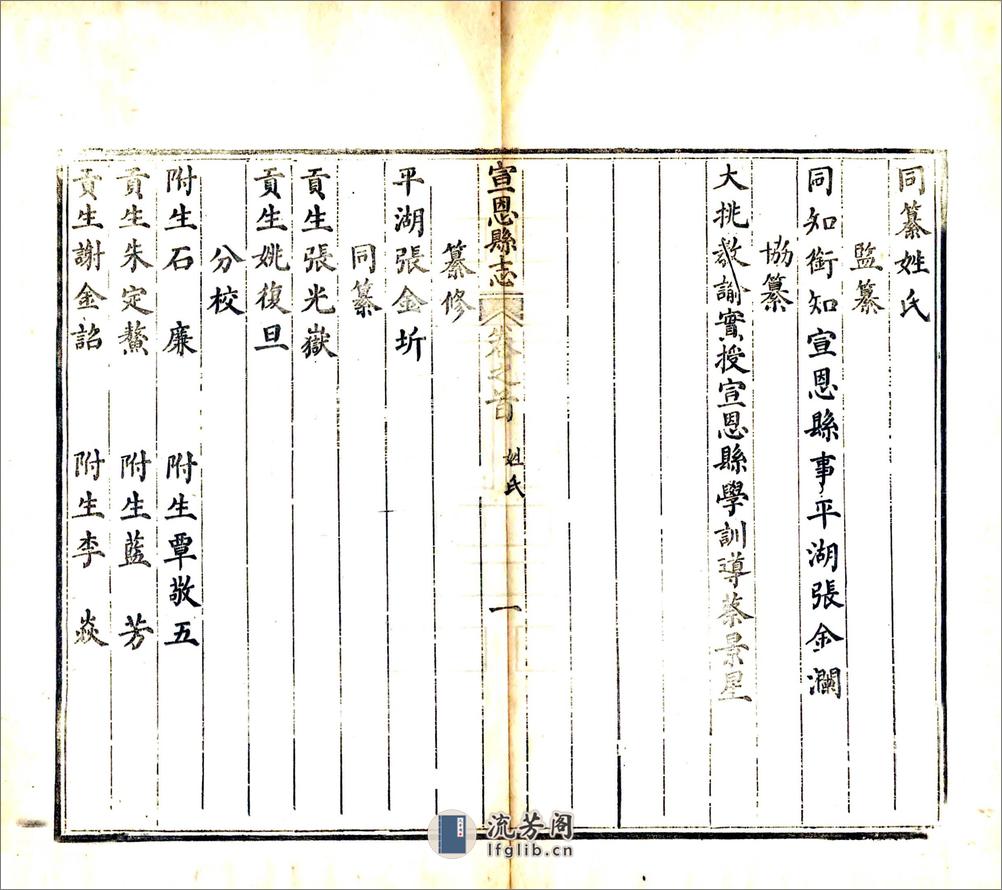 同纂姓氏
監纂
同知銜知宣恩縣事平湖張金瀾
協纂
大挑教諭實授宣恩縣學訓導蔡景星
宣恩縣志 卷之首 姓氏 一
纂修
平湖張金圻
同纂
貢生張光嶽
貢生姚復旦
分校
附生石 廉 附生覃敬五
貢生朱定鰲 附生藍 芳
貢生謝金詔 附生李 焱
流芳阁
lfglib.cn